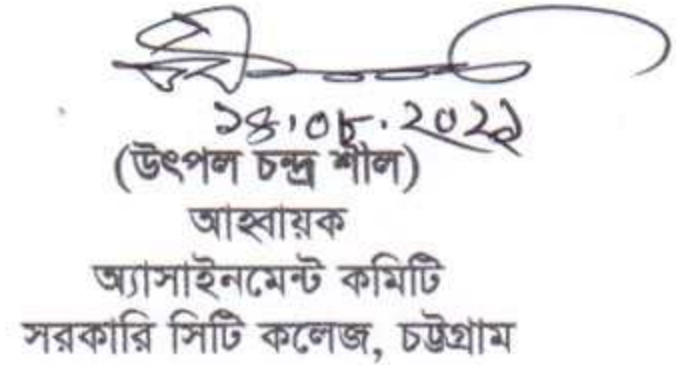 ১৪.০৮.২০২১
(উৎপল চন্দ্র শীল)
আহবায়ক
অ্যাসাইনমেন্ট কমিটি
সরকারি সিটি কলেজ, চট্টগ্রাম